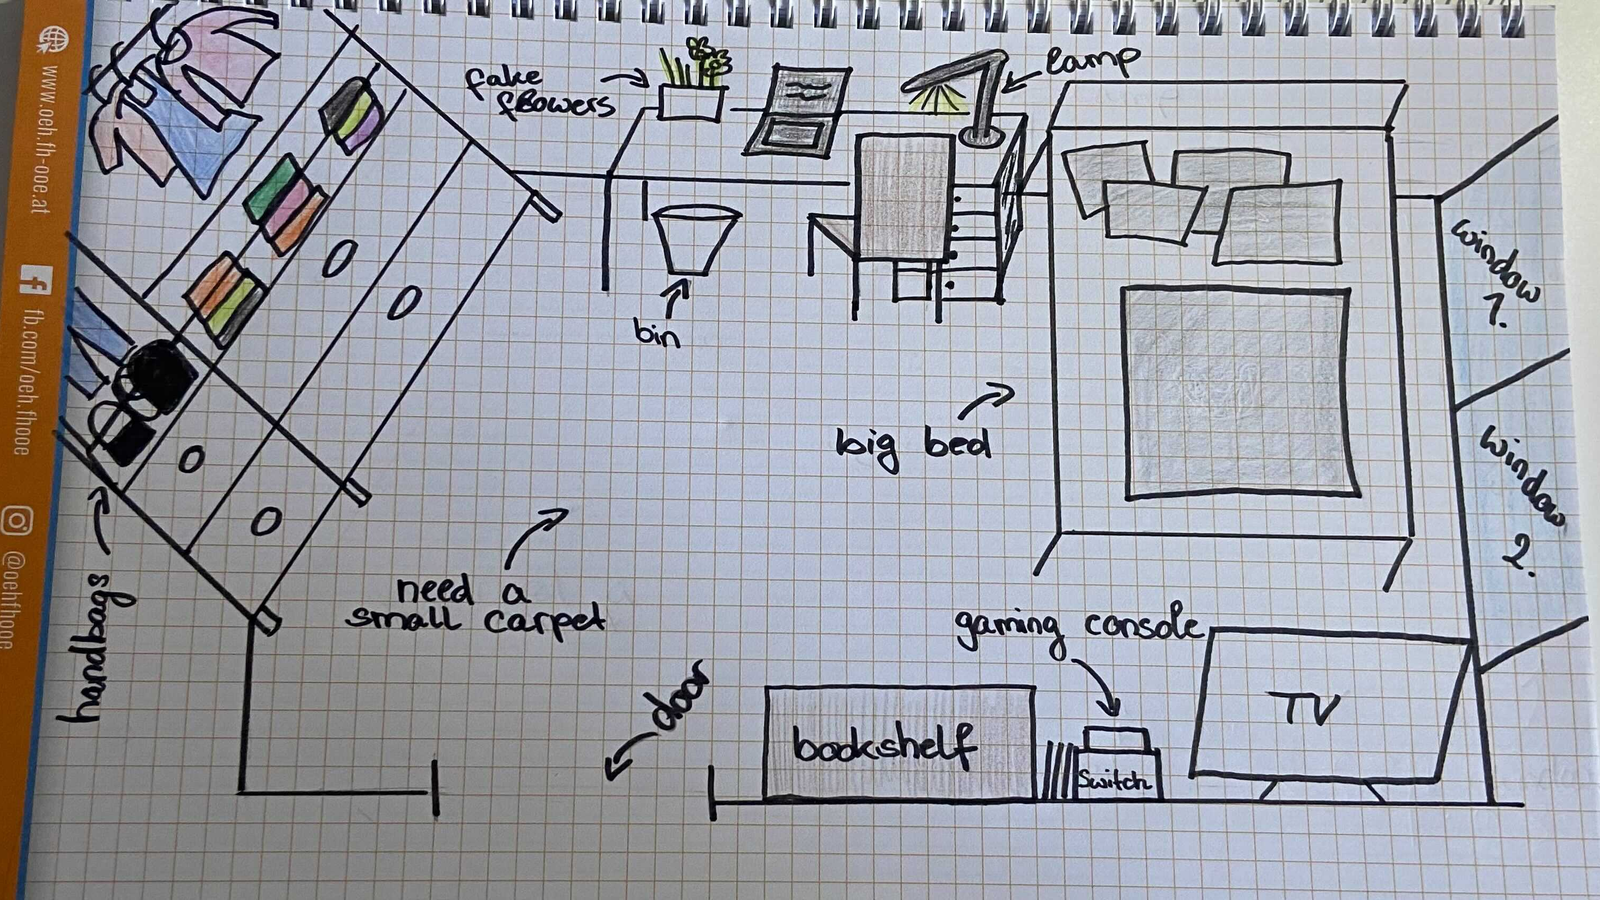 www.oeh.fh-ooe.at
fb.com/oeh.fhooe
@oehfhooe
fake
flowers
lamp
bin
big bed
window
1.
window
2.
handbags
need a
small carpet
door
gaming console
bookshelf
Switch
TV